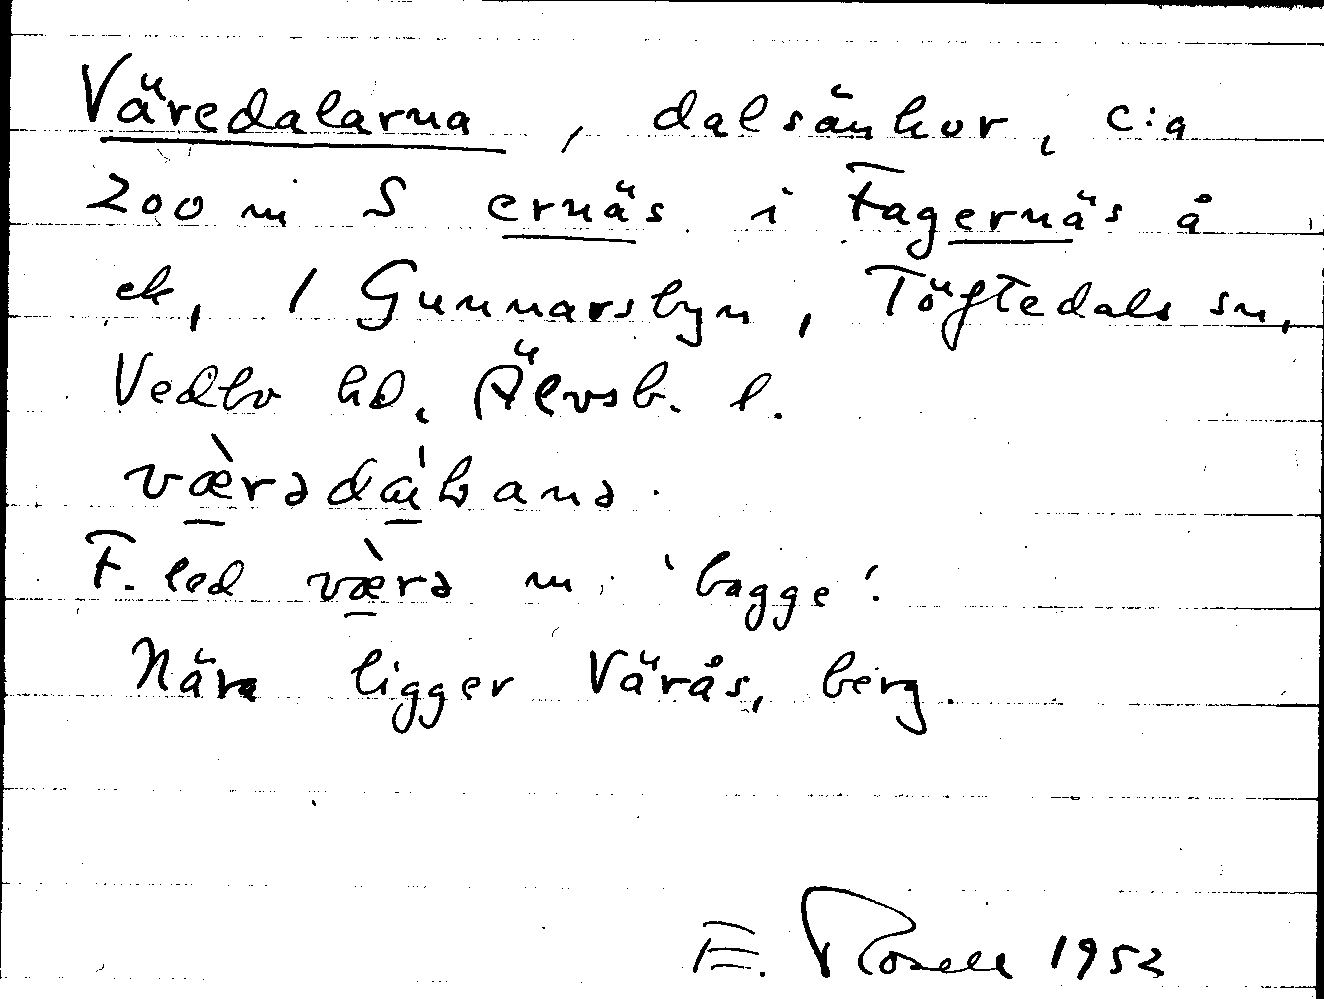 Väredalarna, dalsänkor, c:a
200 m S ernäs i Fagernäs å
ek, 1 Gunnarsbyn, Töftedals sn,
Vedbo hd, Älvsb. l.
F. led værə m. 'bagge'.
Nära ligger Värås, berg.
E. Rosell 1952